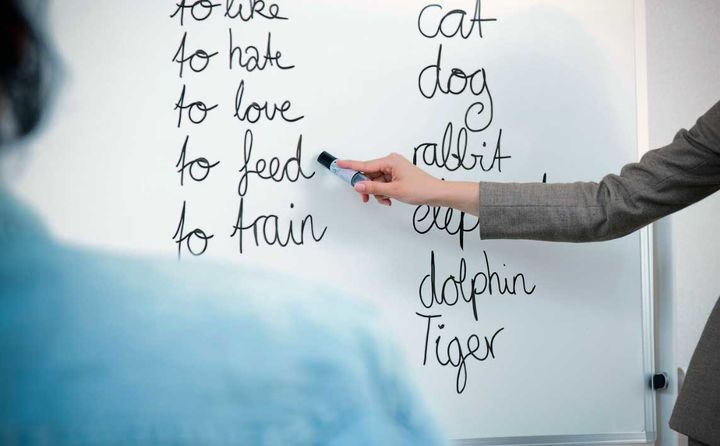 to like
to hate
to love
to feed
to train
cat
dog
rabbit
dolphin
Tiger